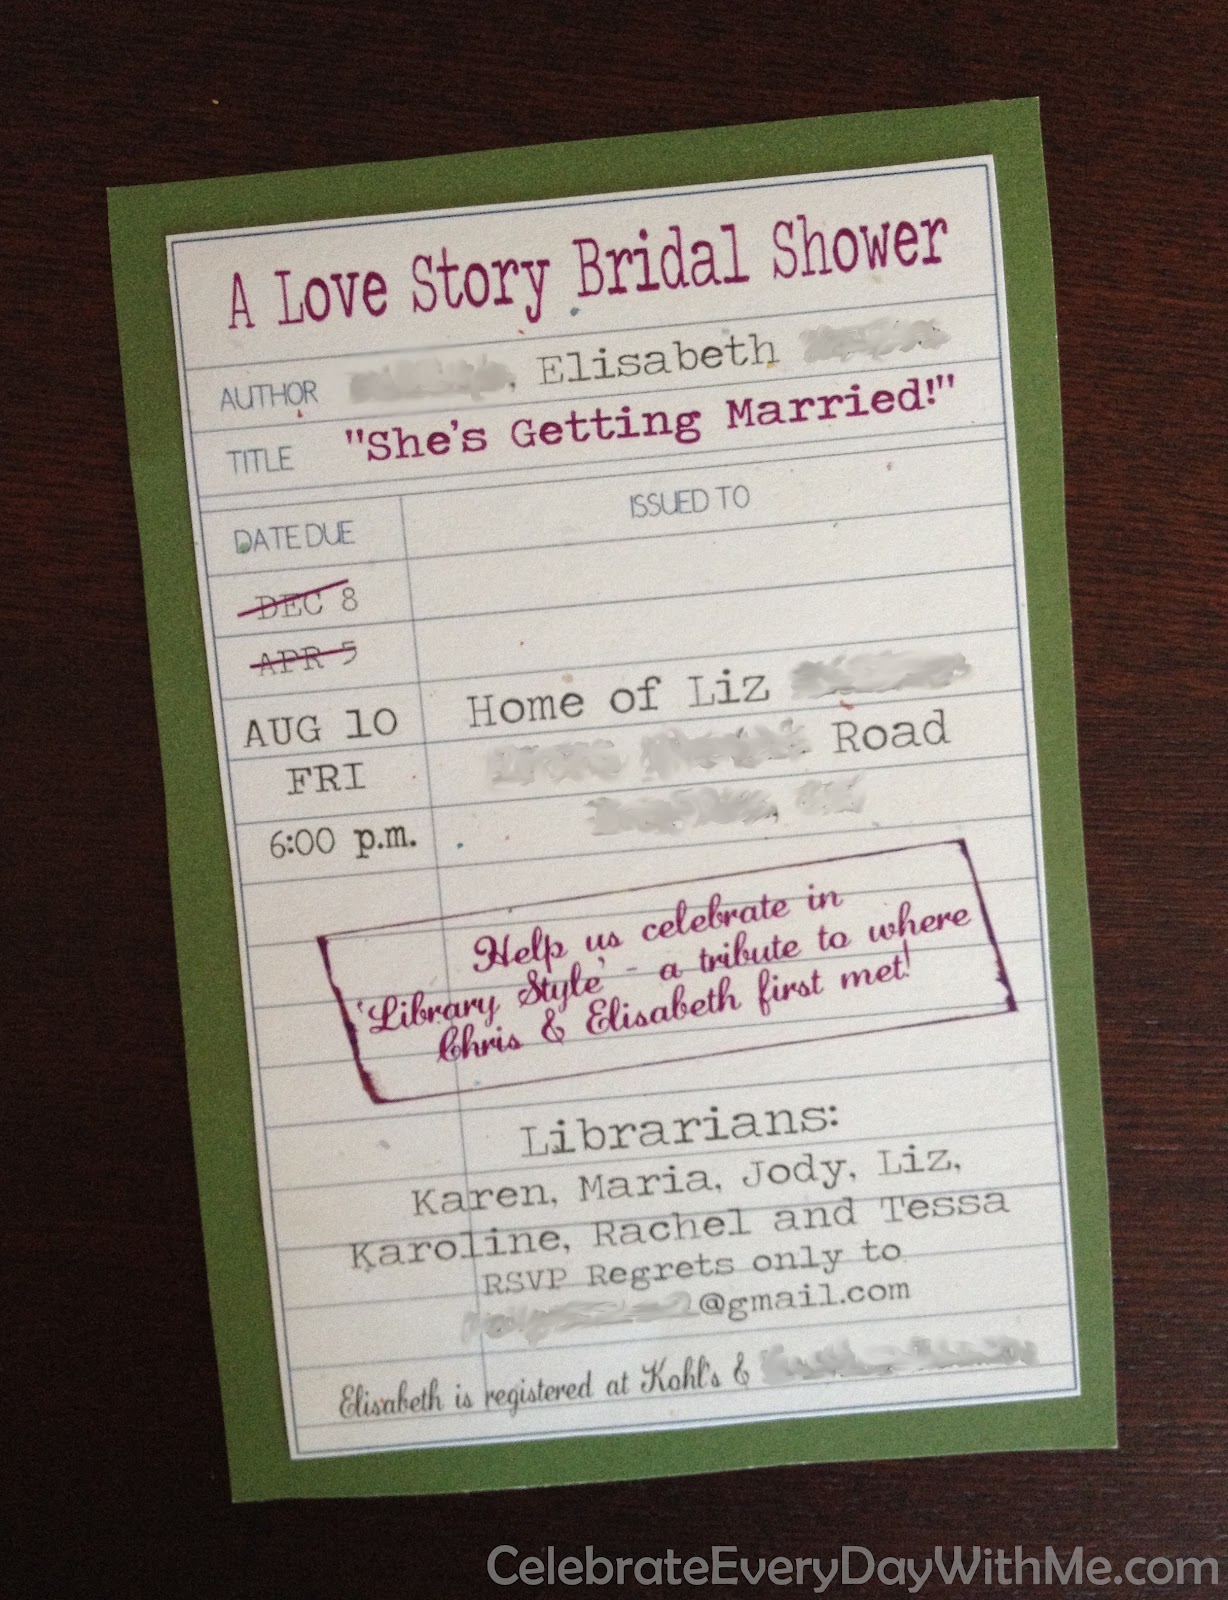 A Love Story Bridal Shower
AUTHOR , Elisabeth
TITLE "She's Getting Married!"
DATE DUE ISSUED TO
DEC 8
APR 5
AUG 10 Home of Liz
FRI Road
6:00 p.m.
Help us celebrate in
'Library Style' - a tribute to where
Chris & Elisabeth first met!
Librarians:
Karen, Maria, Jody, Liz,
Karoline, Rachel and Tessa
RSVP Regrets only to
@gmail.com
Elisabeth is registered at Kohl's &
CelebrateEveryDayWithMe.com